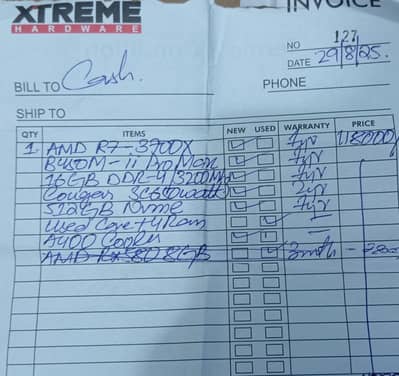 XTREME
HARDWARE
INVOICE
NO 127
DATE 29/8/25.
BILL TO Cash.
PHONE
SHIP TO
QTY ITEMS NEW USED WARRANTY PRICE
1 AMD R7-3700X 1yr 118000/
B450M-ii Pro Max 1yr
16GB DDR-4/3200MHz 1yr
Cougar 650watt 2yr
512GB Nvme 1yr
Used Case +
A400 Cooler
AMD Rx 580 8GB 3mth -